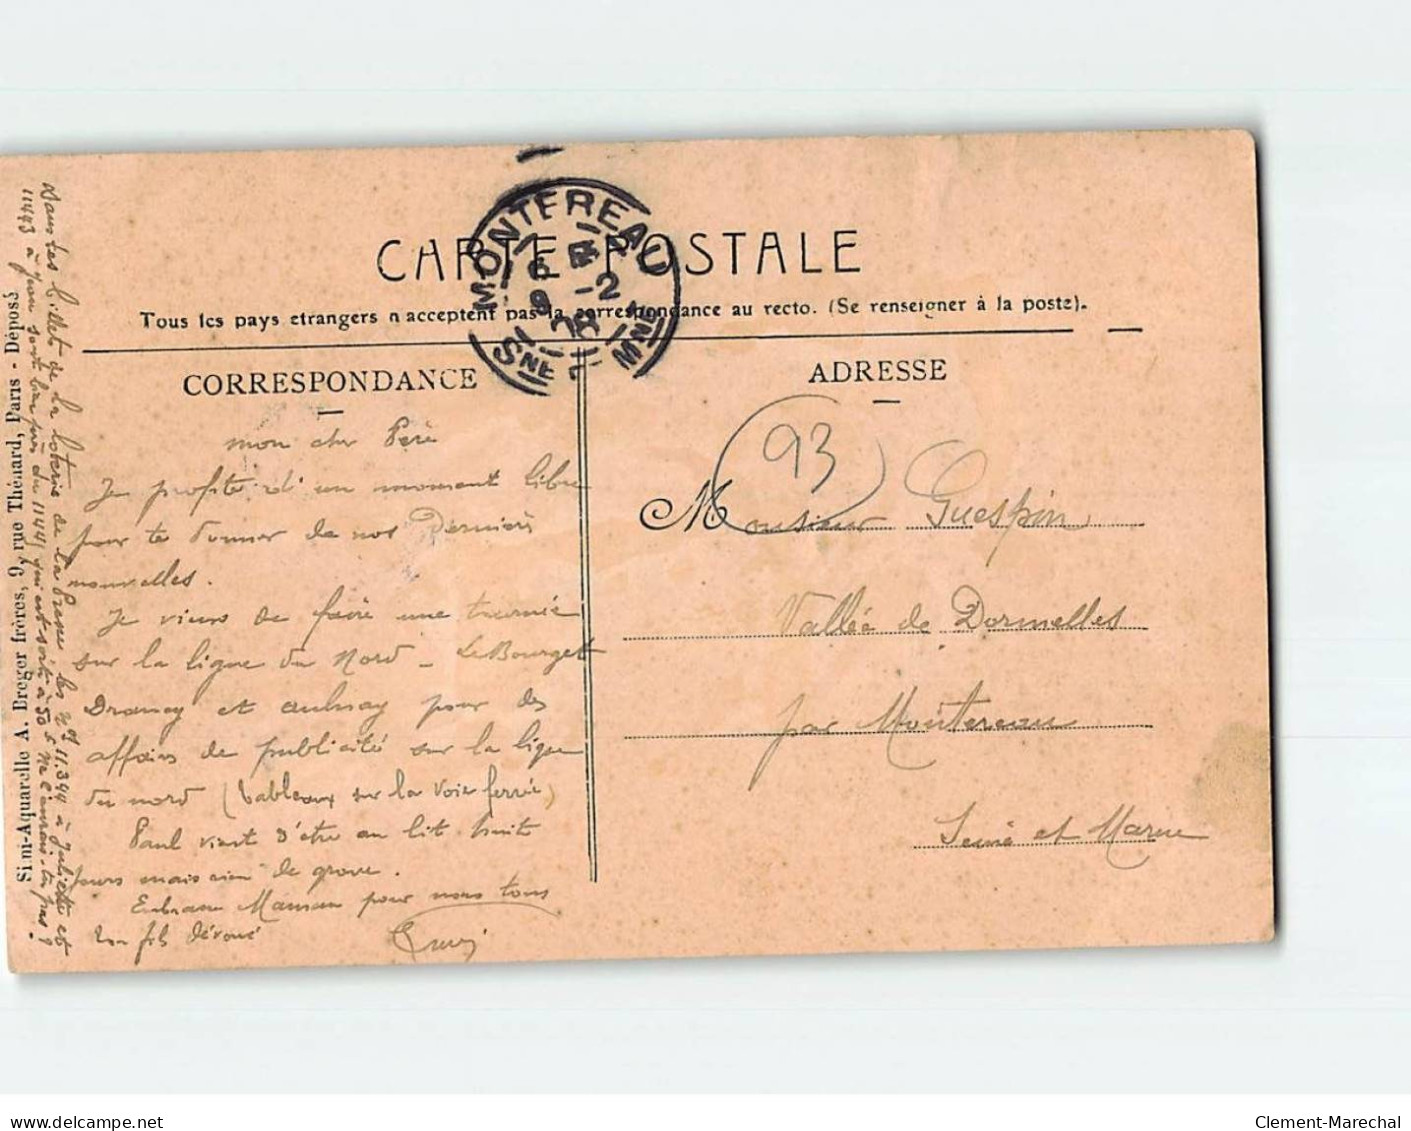 CARTE POSTALE
Tous les pays etrangers n acceptent pas la correspondance au recto. (Se renseigner à la poste).
MONTEREAU
Sne & Mne
CORRESPONDANCE
mon cher Père
Je profite d'un moment libre
pour te donner de nos Dernières
nouvelles.
Je viens de faire une tournée
sur la ligne du Nord - Le Bourget
Drancy et aulnay pour des
affaires de publicité sur la ligne
du nord (tableaux sur la voie ferrée)
Paul vient d'être au lit huit
jours mais rien de grave.
Embrasse Maman pour nous tous
ton fils dévoué
ADRESSE
93
Monsieur Guespin
Vallée de Dormelles
par Montereau
Seine et Marne
Dans tes billets de la loterie de la Presse les nos 11.344 à Juliette et
11443 à sont bien près du 11441 qui est sorti à 50 f Ne l'aurais-tu pas ?
Simi-Aquarelle A. Breger frères, 9, rue Thénard, Paris - Déposé
delcampe.net
Clement-Marechal